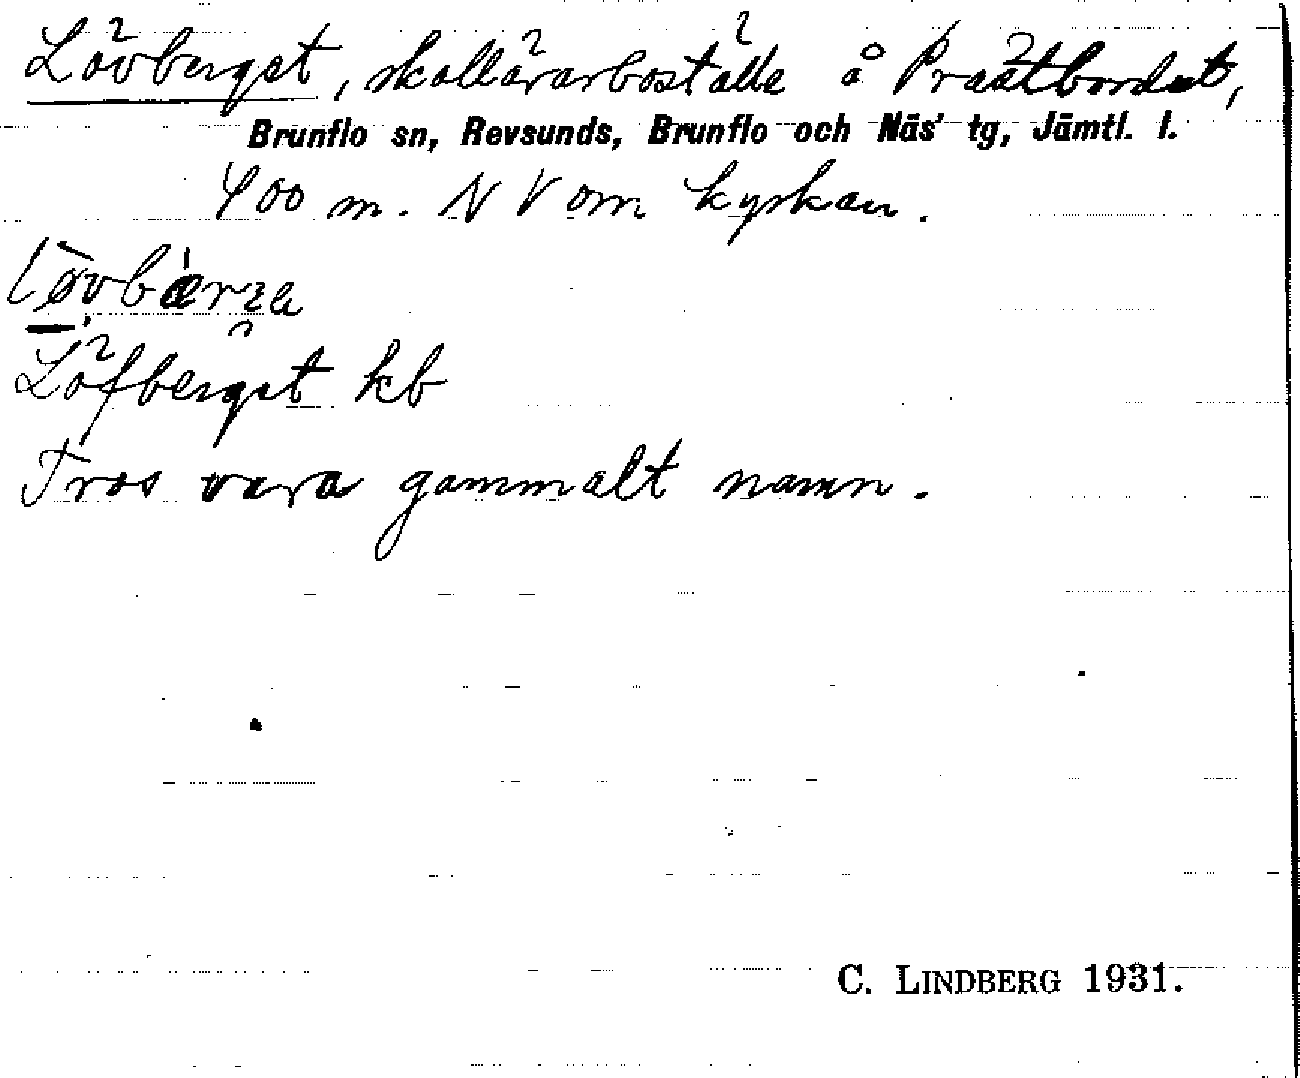 Lövberget, skollärarboställe å Prästbordet,
Brunflo sn, Revsunds, Brunflo och Näs' tg, Jämtl. l.
400 m. NV om kyrkan.
Löfberget kb
Tros vara gammalt namn.
C. LINDBERG 1931.